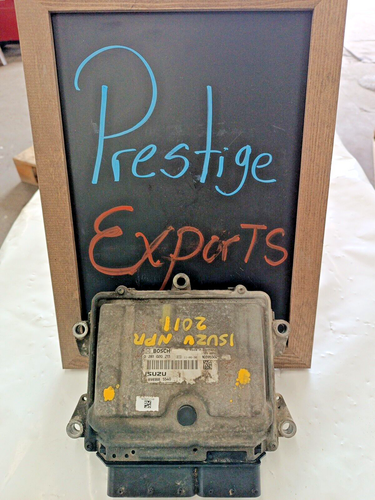 Prestige
Exports
ISUZU NPR
2011
BOSCH
ISUZU